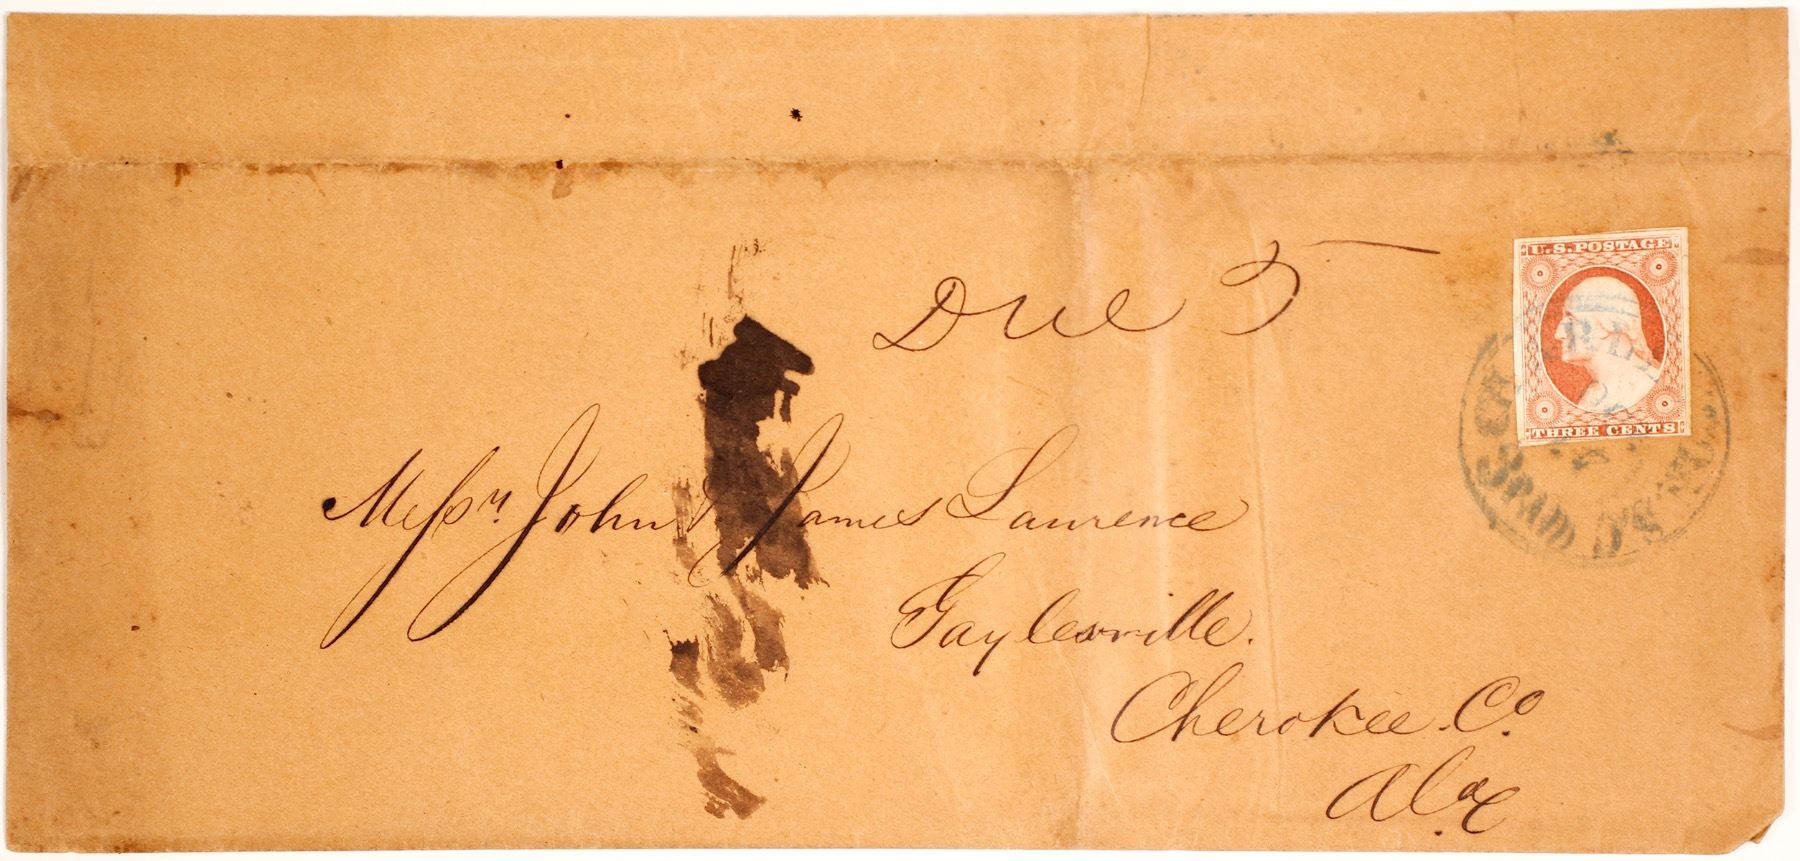 Due 5
U.S. POSTAGE
THREE CENTS
Messrs. John & James Lawrence
Gaylesville.
Cherokee. Co.
Ala